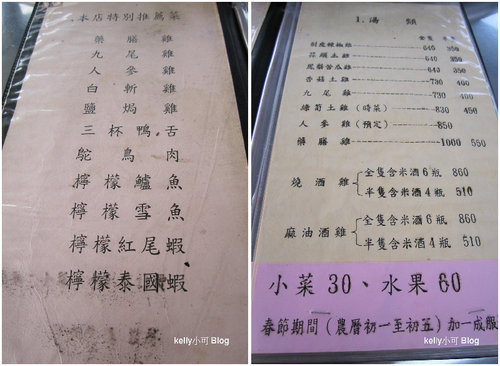 本店特別推薦菜
藥膳雞
九尾雞
人參雞
白斬雞
鹽焗雞
三杯鴨舌
鴕鳥肉
檸檬鱸魚
檸檬雪魚
檸檬紅尾蝦
檸檬泰國蝦
kelly小可 Blog
1.湯類
全隻 半隻
剝皮辣椒雞 640 350
蒜頭土雞 640 350
鳳梨苦瓜雞 640 350
香菇土雞 730 400
九尾雞 730 400
綠筍土雞(時菜) 830 450
人參雞(預定) 850
藥膳雞 1000 550
燒酒雞 全隻含米酒6瓶 860
半隻含米酒4瓶 510
麻油酒雞 全隻含米酒6瓶 860
半隻含米酒4瓶 510
小菜30、水果60
春節期間(農曆初一至初五)加一成服
kelly小可 Blog